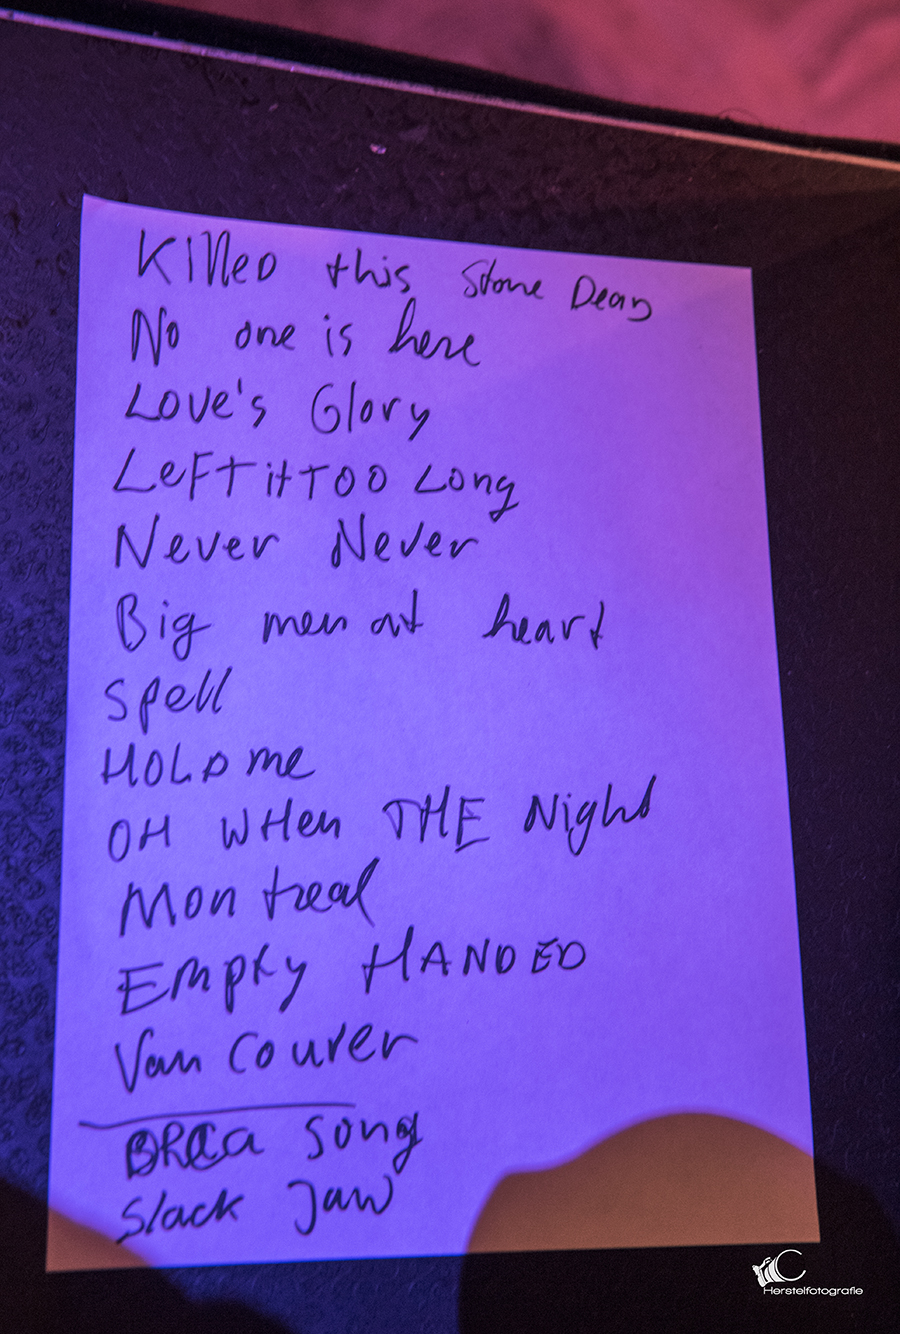 Killed this Stone Dead
No one is here
Love's Glory
Left it Too Long
Never Never
Big men at heart
Spell
HOLD me
OH WHen THE Night
Montreal
Empty HANDED
Vancouver
song
Slack Jaw
Herstelfotografie